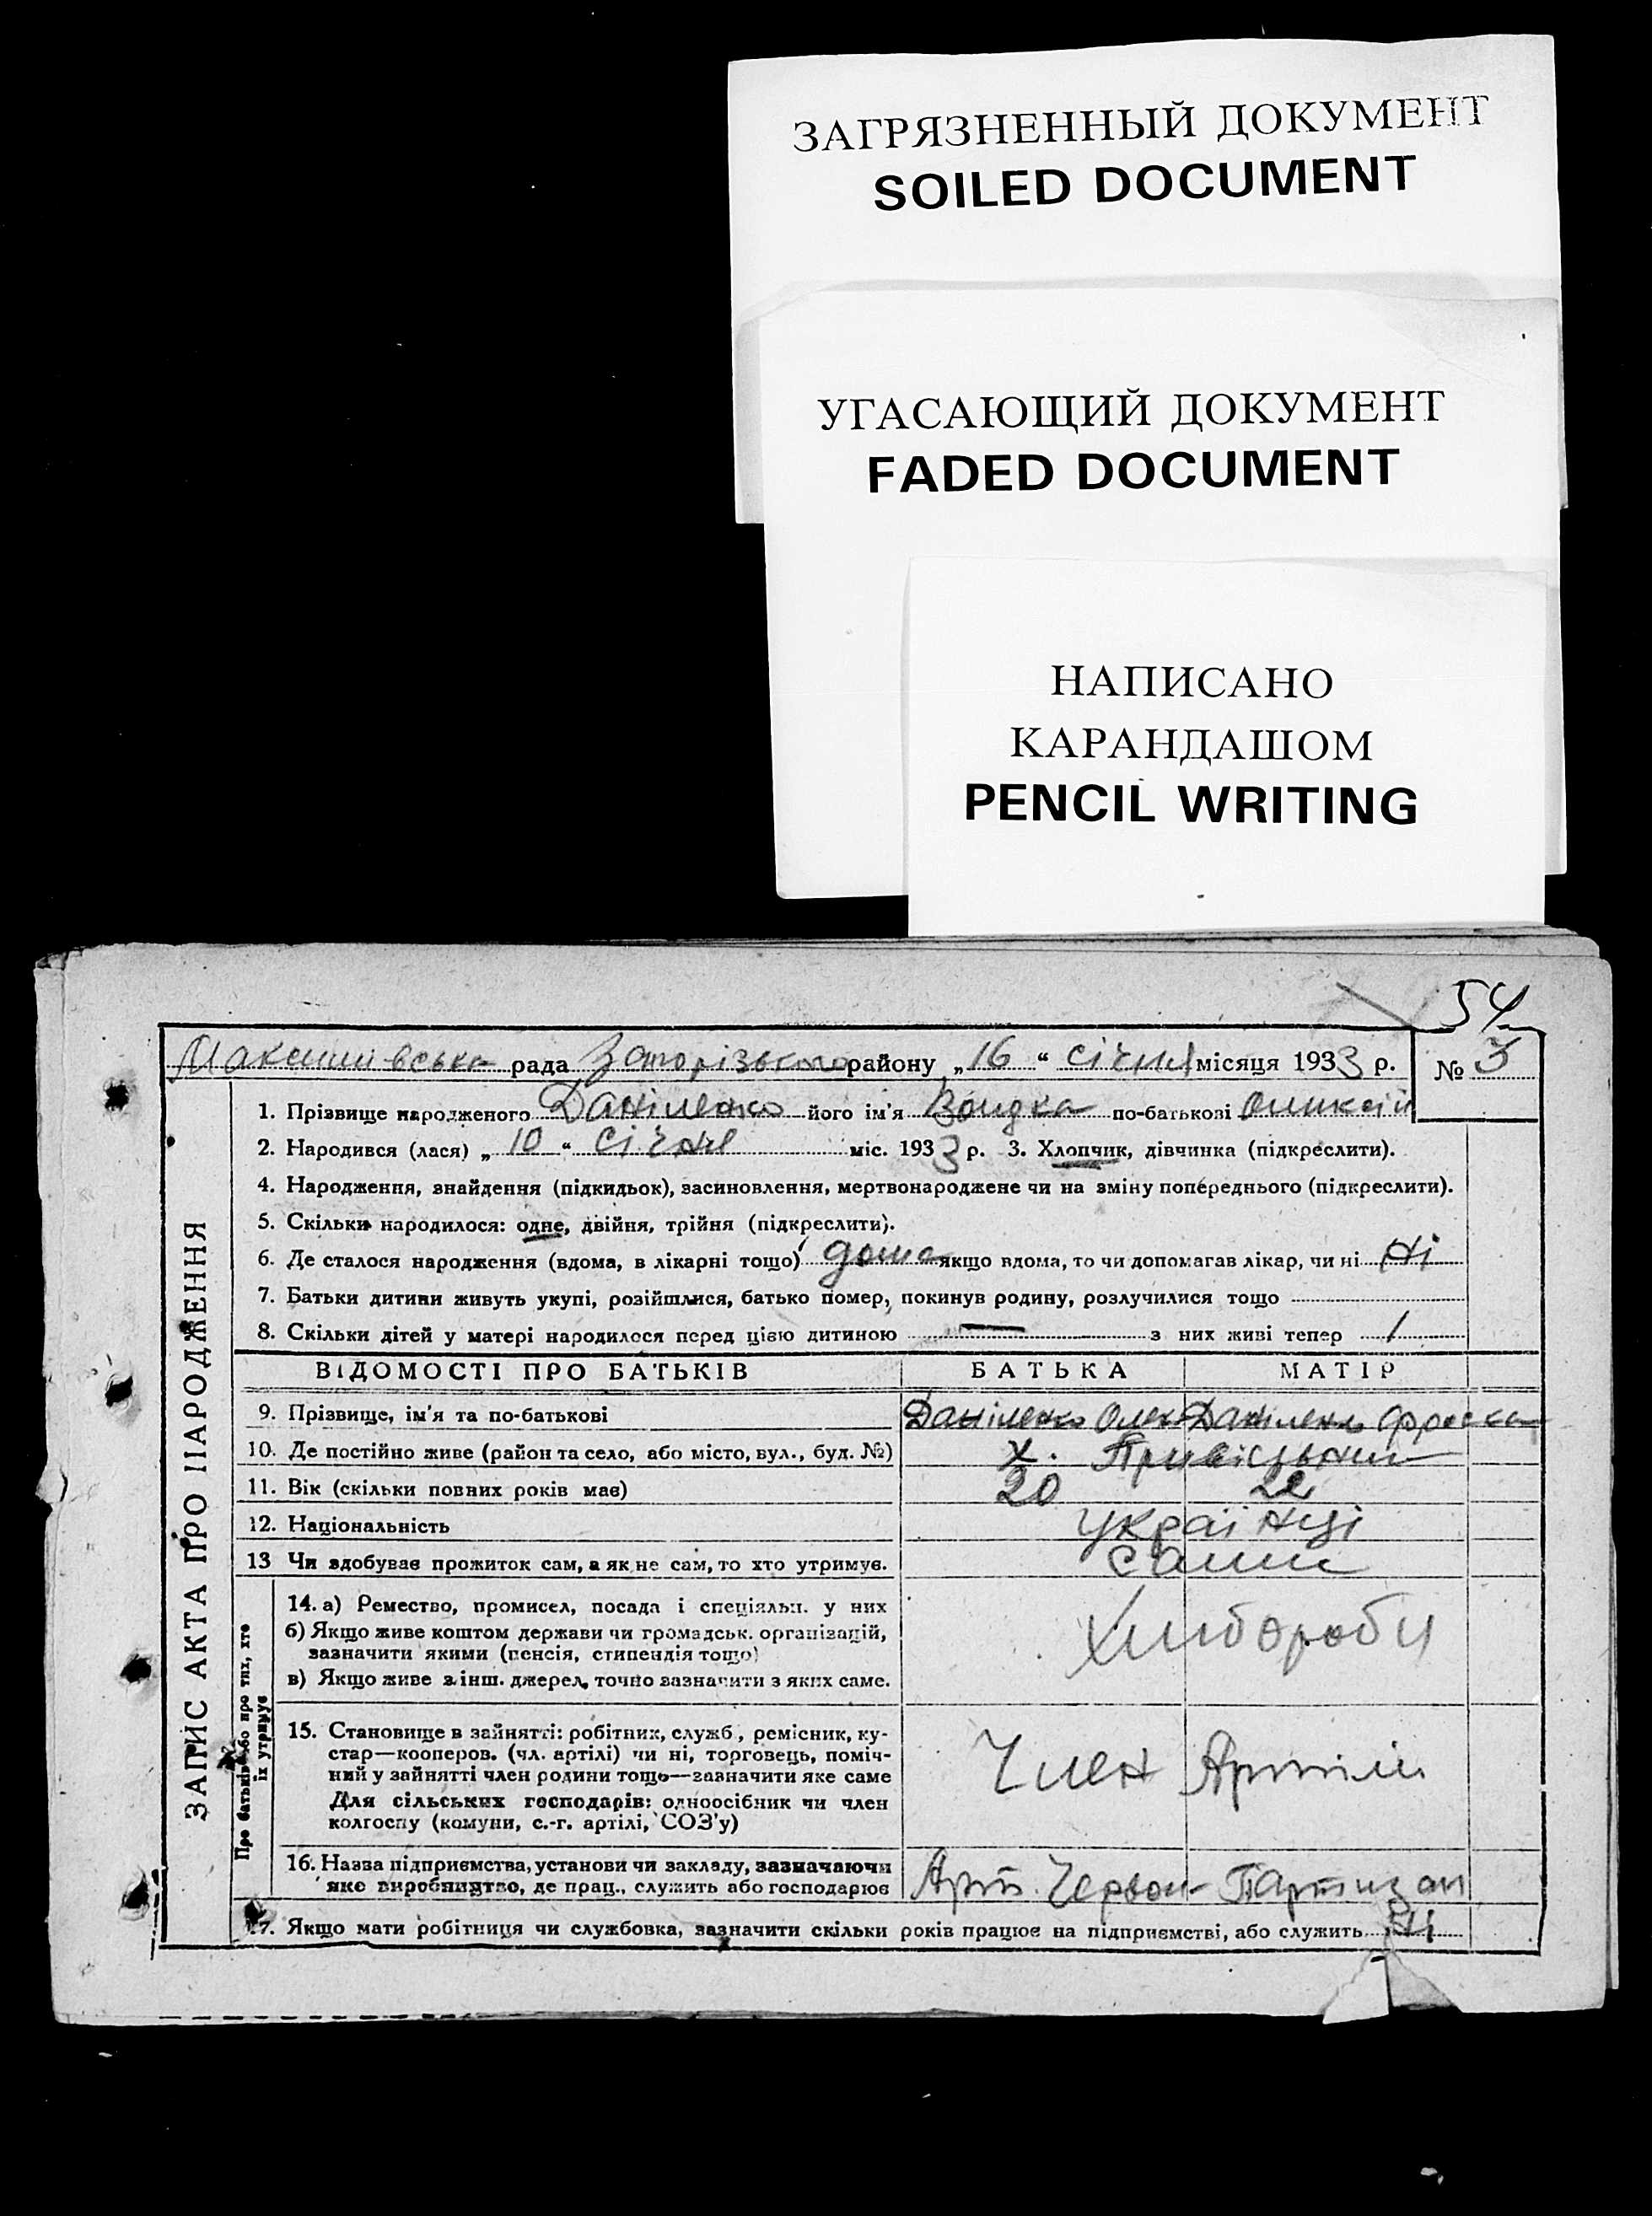 ЗАГРЯЗНЕННЫЙ ДОКУМЕНТ
SOILED DOCUMENT
УГАСАЮЩИЙ ДОКУМЕНТ
FADED DOCUMENT
НАПИСАНО
КАРАНДАШОМ
PENCIL WRITING
54
рада Запорізького району „16“ січня місяця 1933 р.
№ 3
ЗАПИС АКТА ПРО НАРОДЖЕННЯ
1. Прізвище народженого Даніленко його ім'я по-батькові
2. Народився (лася) „10“ Січня міс. 1933 р. 3. Хлопчик, дівчинка (підкреслити).
4. Народження, знайдення (підкидьок), засиновлення, мертвонароджене чи на зміну попереднього (підкреслити).
5. Скільки народилося: одне, двійня, трійня (підкреслити).
6. Де сталося народження (вдома, в лікарні тощо) дома якщо вдома, то чи допомагав лікар, чи ні Ні
7. Батьки дитини живуть укупі, розійшлися, батько помер, покинув родину, розлучилися тощо
8. Скільки дітей у матері народилося перед цією дитиною — з них живі тепер 1
ВІДОМОСТІ ПРО БАТЬКІВ БАТЬКА МАТІР
9. Прізвище, ім'я та по-батькові Даніленко Олек Даніленко
10. Де постійно живе (район та село, або місто, вул., буд. №) х.
11. Вік (скільки повних років має) 20 22
12. Національність Українці
13 Чи здобуває прожиток сам, а як не сам, то хто утримує. сами
Про батьків або про тих, хто
їх утримує
14. а) Ремество, промисел, посада і спеціяльн. у них
б) Якщо живе коштом держави чи громадськ. організацій,
зазначити якими (пенсія, стипендія тощо)
в) Якщо живе з інш. джерел, точно зазначити з яких саме.
Хлібороби
15. Становище в зайнятті: робітник, служб., ремісник, ку-
стар—кооперов. (чл. артілі) чи ні, торговець, поміч-
ний у зайнятті член родини тощо—зазначити яке саме
Для сільських господарів: одноосібник чи член
колгоспу (комуни, с.-г. артілі, СОЗ'у)
Член Артіли
16. Назва підприємства, установи чи закладу, зазначаючи
яке виробництво, де прац., служить або господарює
Арт. Червон Партизан
17. Якщо мати робітниця чи службовка, зазначити скільки років працює на підприємстві, або служить Ні